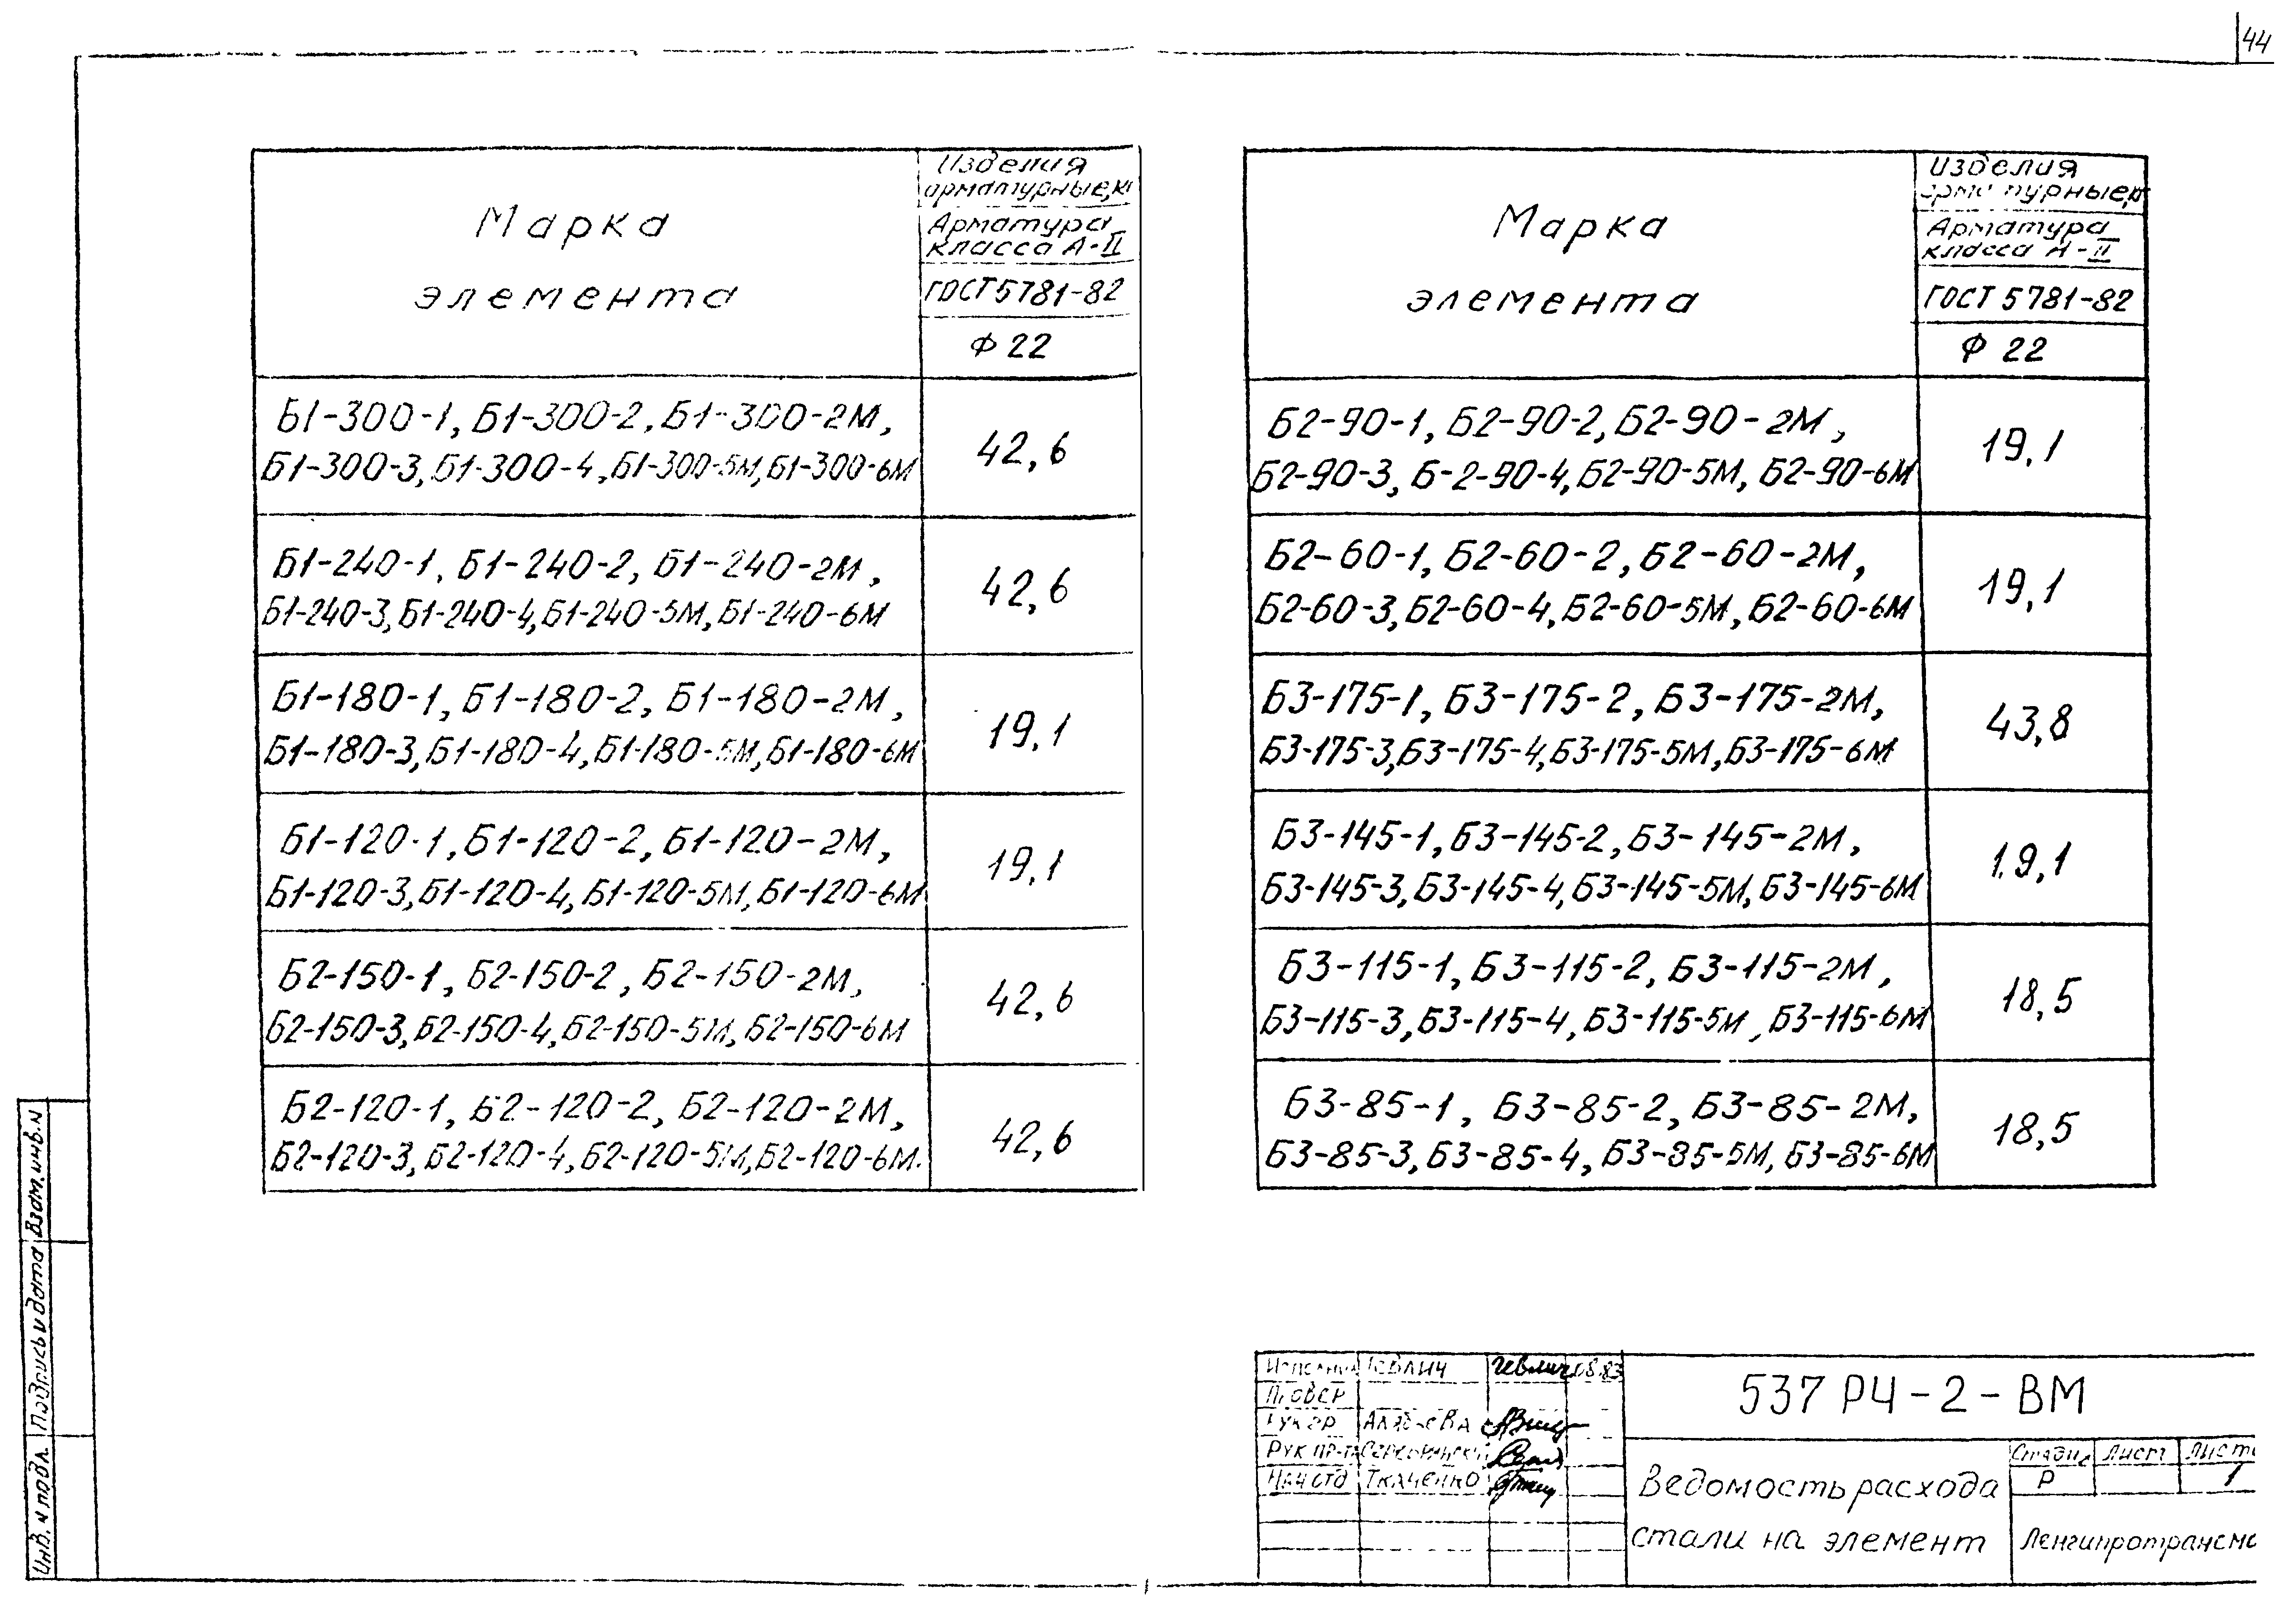 44
Марка
элемента
Изделия
арматурные,
Арматура
класса А-II
ГОСТ 5781-82
Ф 22
Б1-300-1, Б1-300-2, Б1-300-2М,
Б1-300-3, Б1-300-4, Б1-300-5М, Б1-300-6М
42,6
Б1-240-1, Б1-240-2, Б1-240-2М,
Б1-240-3, Б1-240-4, Б1-240-5М, Б1-240-6М
42,6
Б1-180-1, Б1-180-2, Б1-180-2М,
Б1-180-3, Б1-180-4, Б1-180-5М, Б1-180-6М
19,1
Б1-120-1, Б1-120-2, Б1-120-2М,
Б1-120-3, Б1-120-4, Б1-120-5М, Б1-120-6М
19,1
Б2-150-1, Б2-150-2, Б2-150-2М,
Б2-150-3, Б2-150-4, Б2-150-5М, Б2-150-6М
42,6
Б2-120-1, Б2-120-2, Б2-120-2М,
Б2-120-3, Б2-120-4, Б2-120-5М, Б2-120-6М.
42,6
Марка
элемента
Изделия
Арматура
класса А-II
ГОСТ 5781-82
Ф 22
Б2-90-1, Б2-90-2, Б2-90-2М,
Б2-90-3, Б-2-90-4, Б2-90-5М, Б2-90-6М
19,1
Б2-60-1, Б2-60-2, Б2-60-2М,
Б2-60-3, Б2-60-4, Б2-60-5М, Б2-60-6М
19,1
Б3-175-1, Б3-175-2, Б3-175-2М,
Б3-175-3, Б3-175-4, Б3-175-5М, Б3-175-6М
43,8
Б3-145-1, Б3-145-2, Б3-145-2М,
Б3-145-3, Б3-145-4, Б3-145-5М, Б3-145-6М
19,1
Б3-115-1, Б3-115-2, Б3-115-2М,
Б3-115-3, Б3-115-4, Б3-115-5М, Б3-115-6М
18,5
Б3-85-1, Б3-85-2, Б3-85-2М,
Б3-85-3, Б3-85-4, Б3-85-5М, Б3-85-6М
18,5
Взам. инв. N
Подпись и дата
Инв. N подл.
Гевлич 08.83
Провер
Рук гр
Рук пр-та
Нач отд Ткаченко
537 РЧ-2-ВМ
Ведомость расхода
стали на элемент
Стадия Лист
Р 1
Ленгипротрансмо